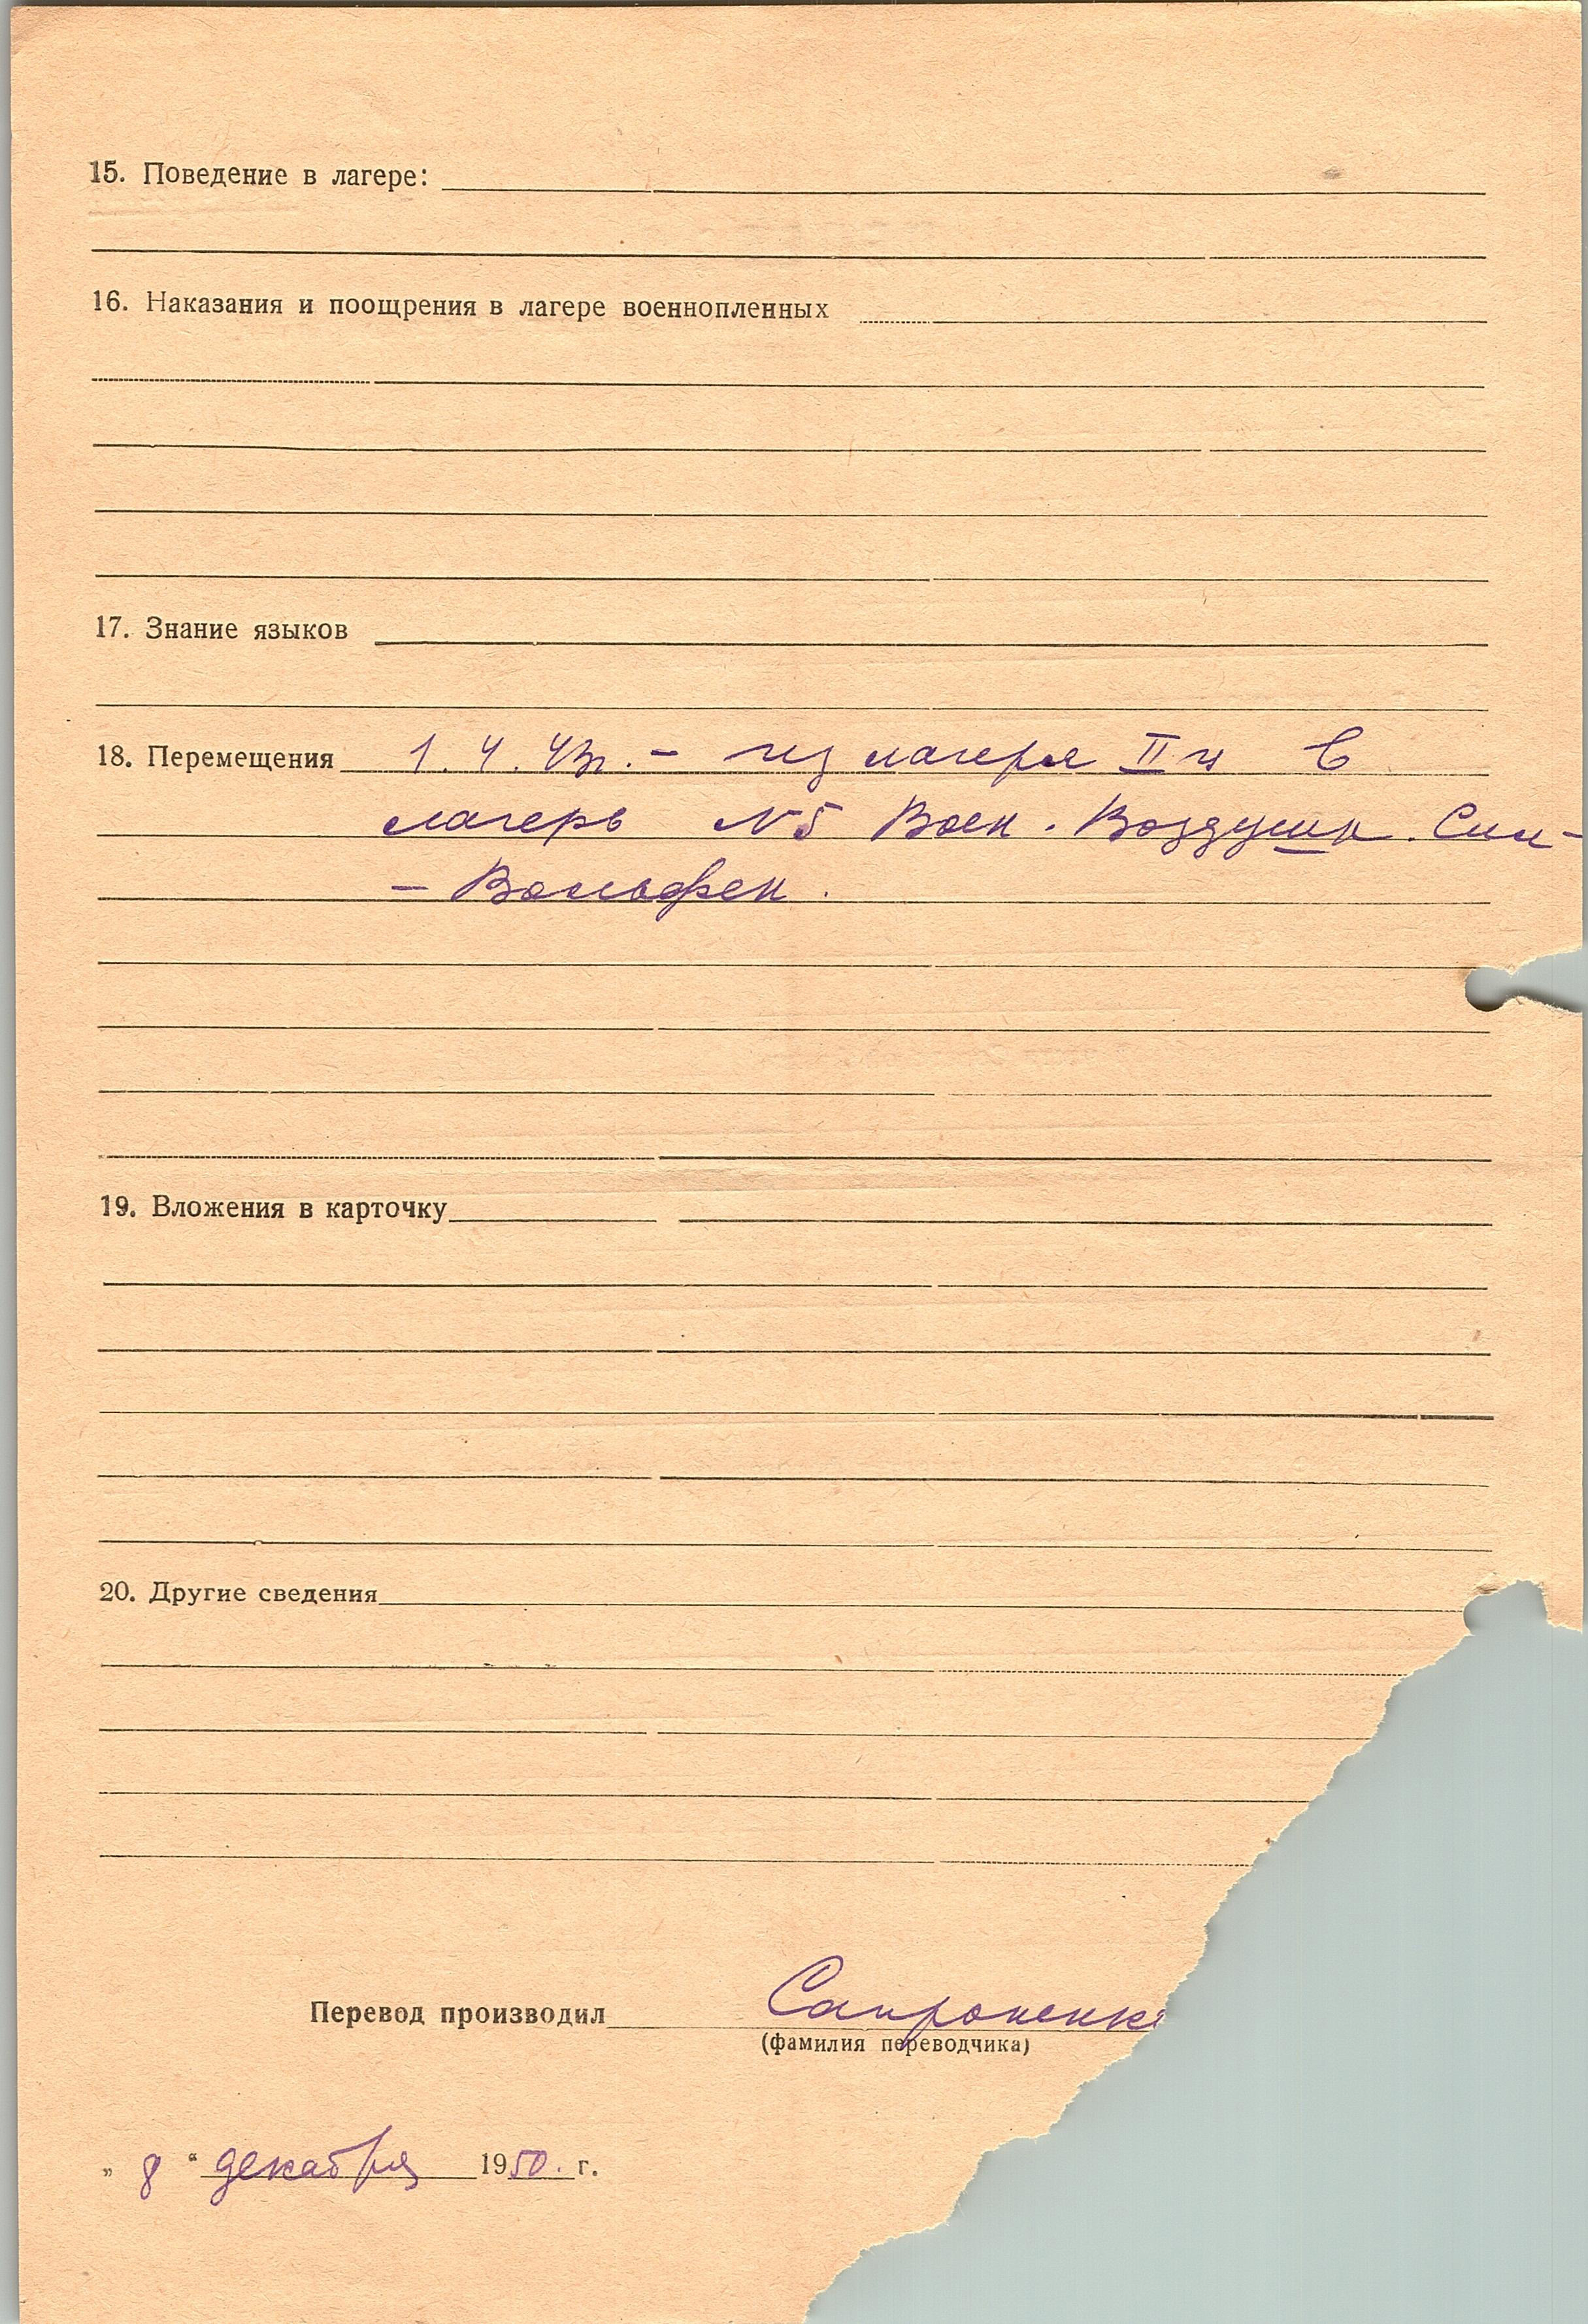 15. Поведение в лагере:
16. Наказания и поощрения в лагере военнопленных
17. Знание языков
18. Перемещения 1. 4. 43г. – из лагеря II н в
лагерь №5 Воен. Воздушн. Сил –
– Вольфен.
19. Вложения в карточку
20. Другие сведения
Перевод производил Сапроненк
(фамилия переводчика)
„ 8 “ декабря 1950. г.